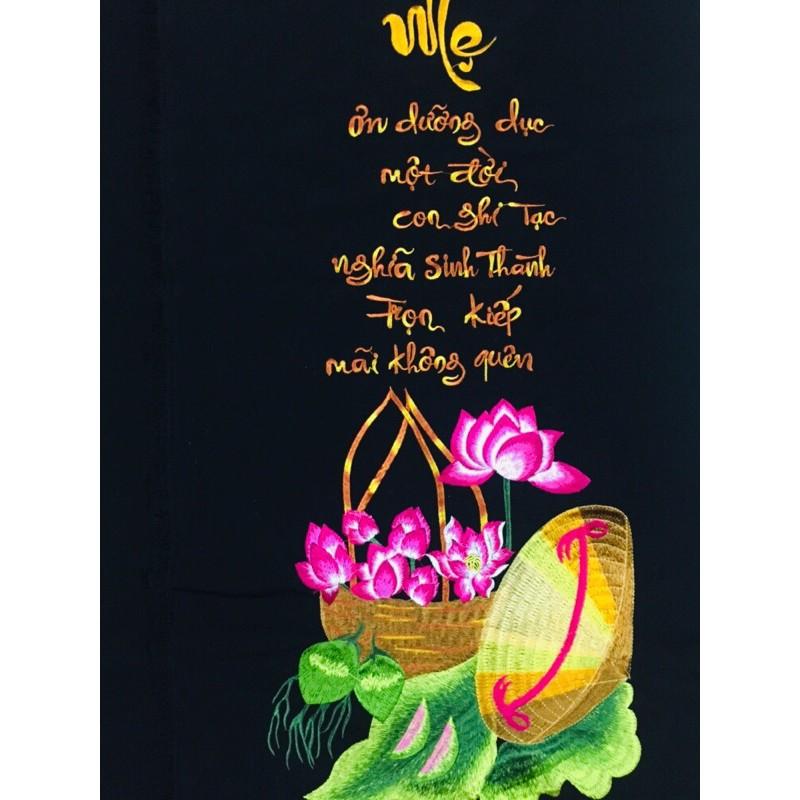 Mẹ
ơn dưỡng dục
một đời
con ghi Tạc
nghĩa Sinh Thành
Trọn kiếp
mãi không quên